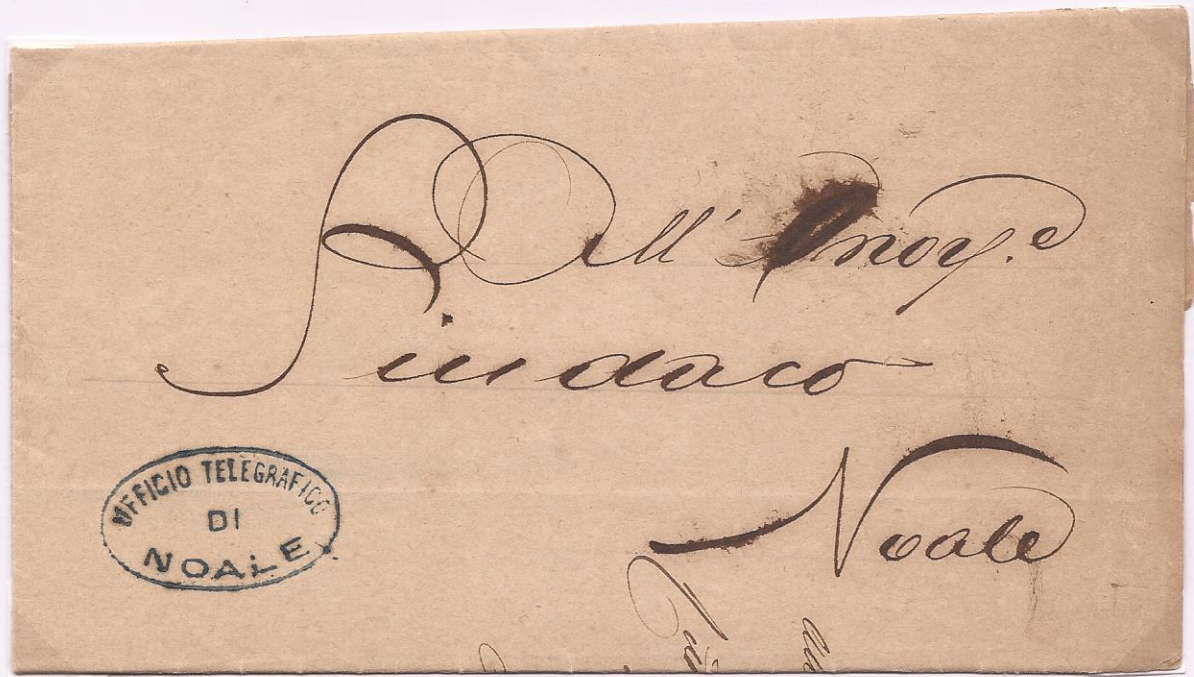 All' Onor.e
Sindaco
Noale
UFFICIO TELEGRAFICO
DI
NOALE